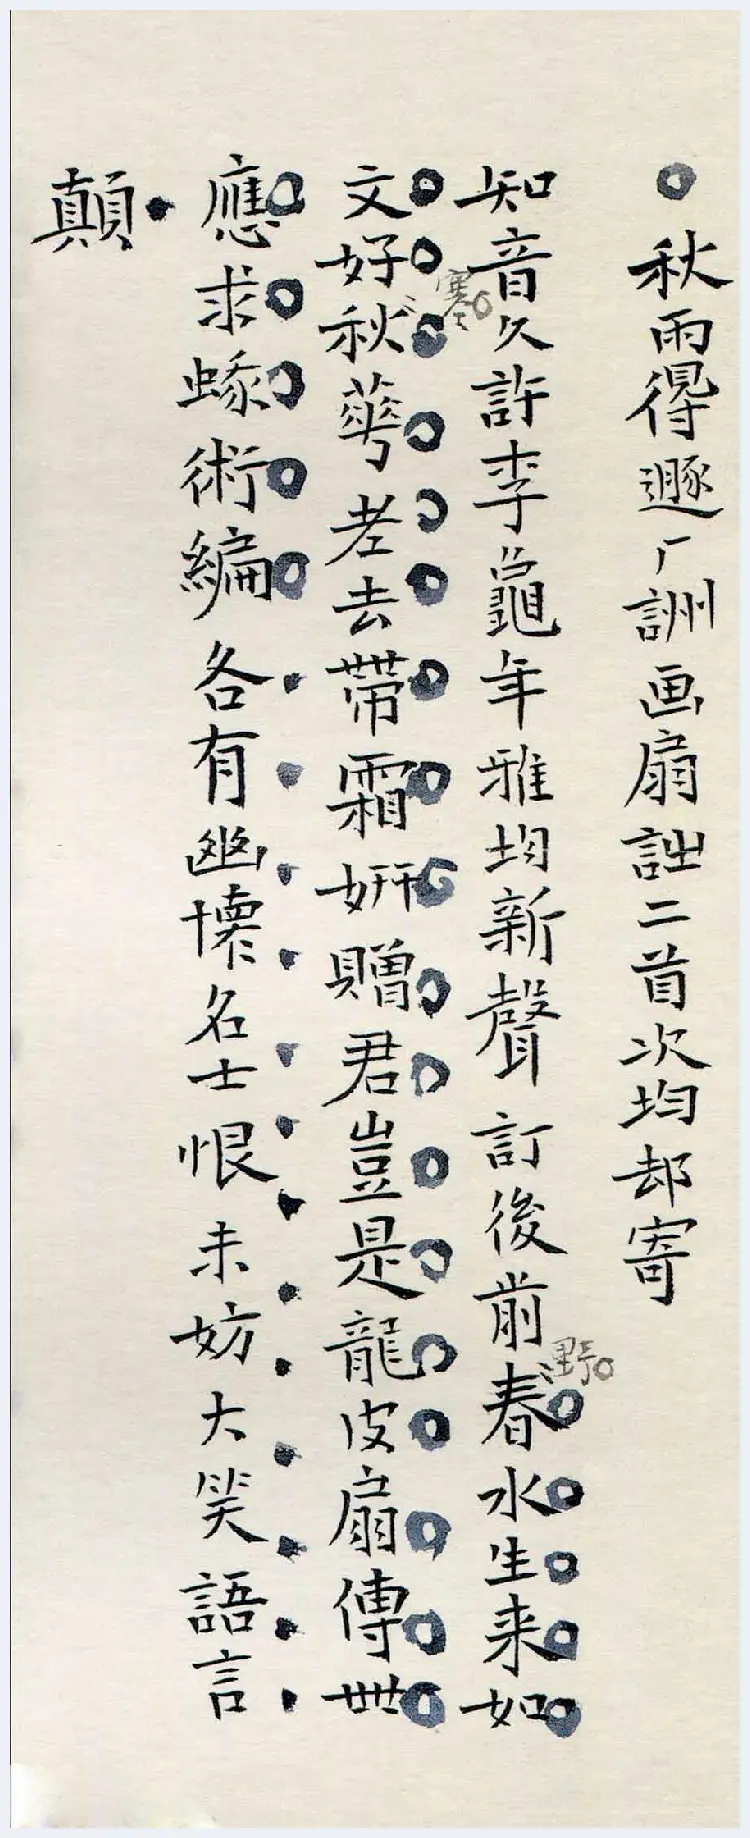 秋雨得遯厂詶画扇詘二首次均却寄
知音久許李龜年雅均新聲訂後前春水生来如
野
文好秋華老去帶霜妍贈君豈是龍皮扇傳世
寒
應求蛾術編各有幽懷名士恨未妨大笑語言
顛